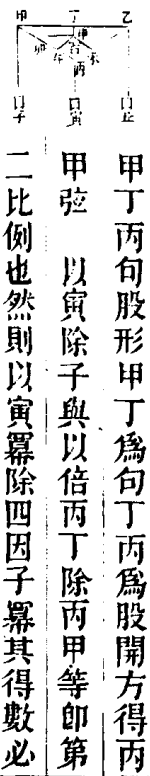 甲 丁 乙
戊
卯 午 吉 未
丙
口子 口寅 口丑
甲丁丙句股形甲丁爲句丁丙爲股開方得丙
甲弦 以寅除子與以倍丙丁除丙甲等即第
二比例也然則以寅冪除四因子冪其得數必